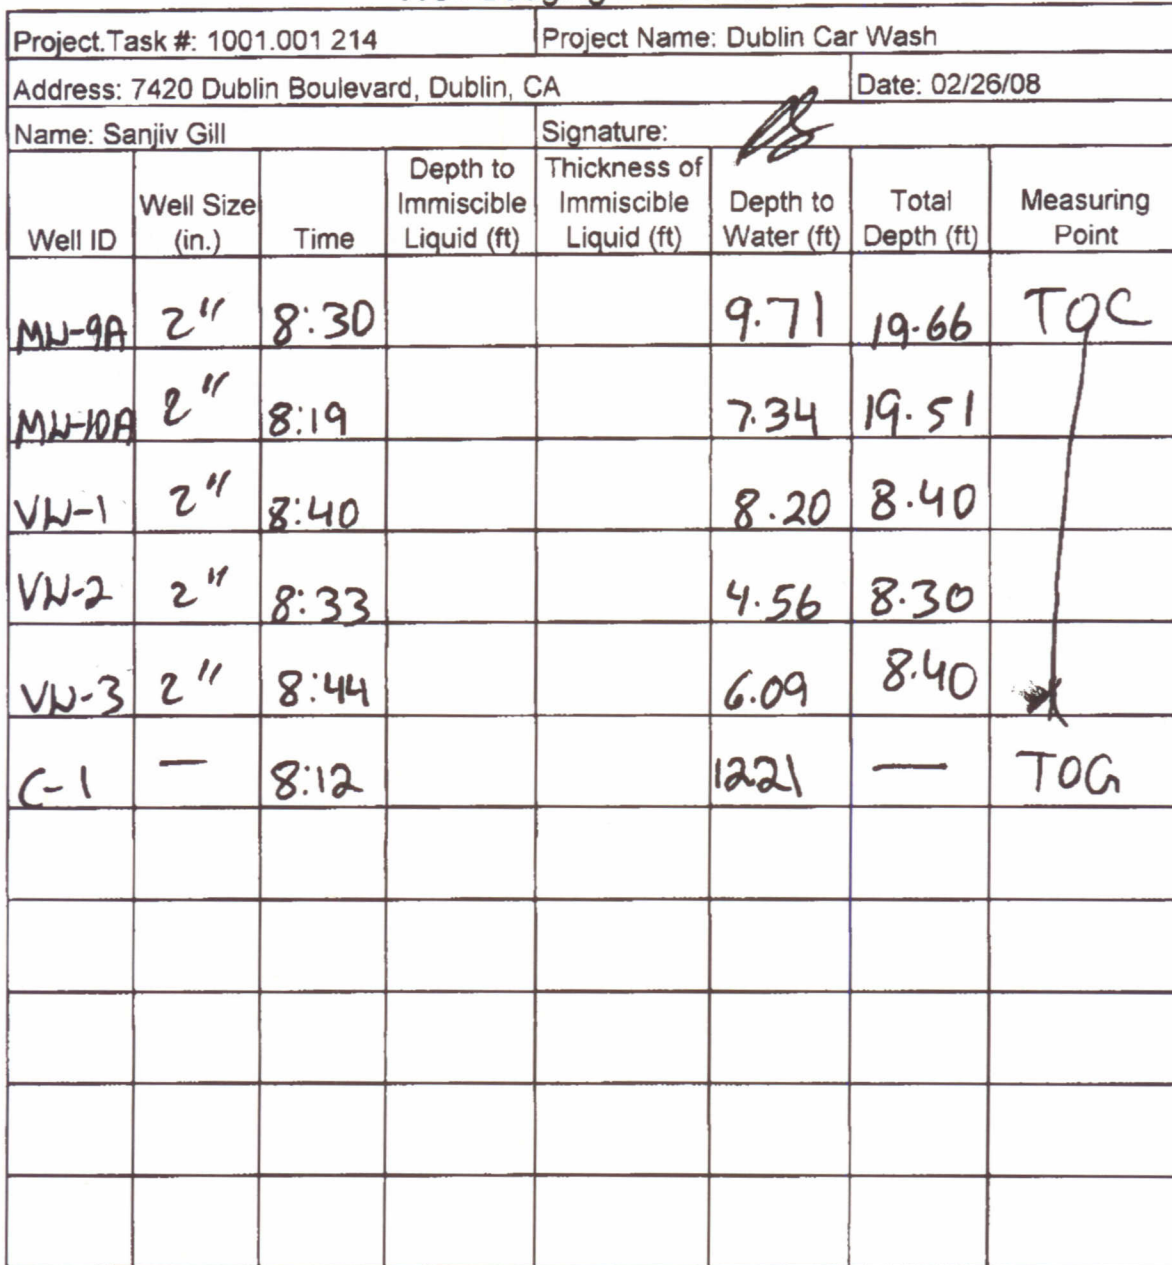 Project.Task #: 1001.001 214 Project Name: Dublin Car Wash
Address: 7420 Dublin Boulevard, Dublin, CA Date: 02/26/08
Name: Sanjiv Gill Signature:
Well ID Well Size (in.) Time Depth to Immiscible Liquid (ft) Thickness of Immiscible Liquid (ft) Depth to Water (ft) Total Depth (ft) Measuring Point
MW-9A 2" 8:30 9.71 19.66 TOC
MW-10A 2" 8:19 7.34 19.51
VW-1 2" 8:40 8.20 8.40
VW-2 2" 8:33 4.56 8.30
VW-3 2" 8:44 6.09 8.40
C-1 — 8:12 1221 — TOG